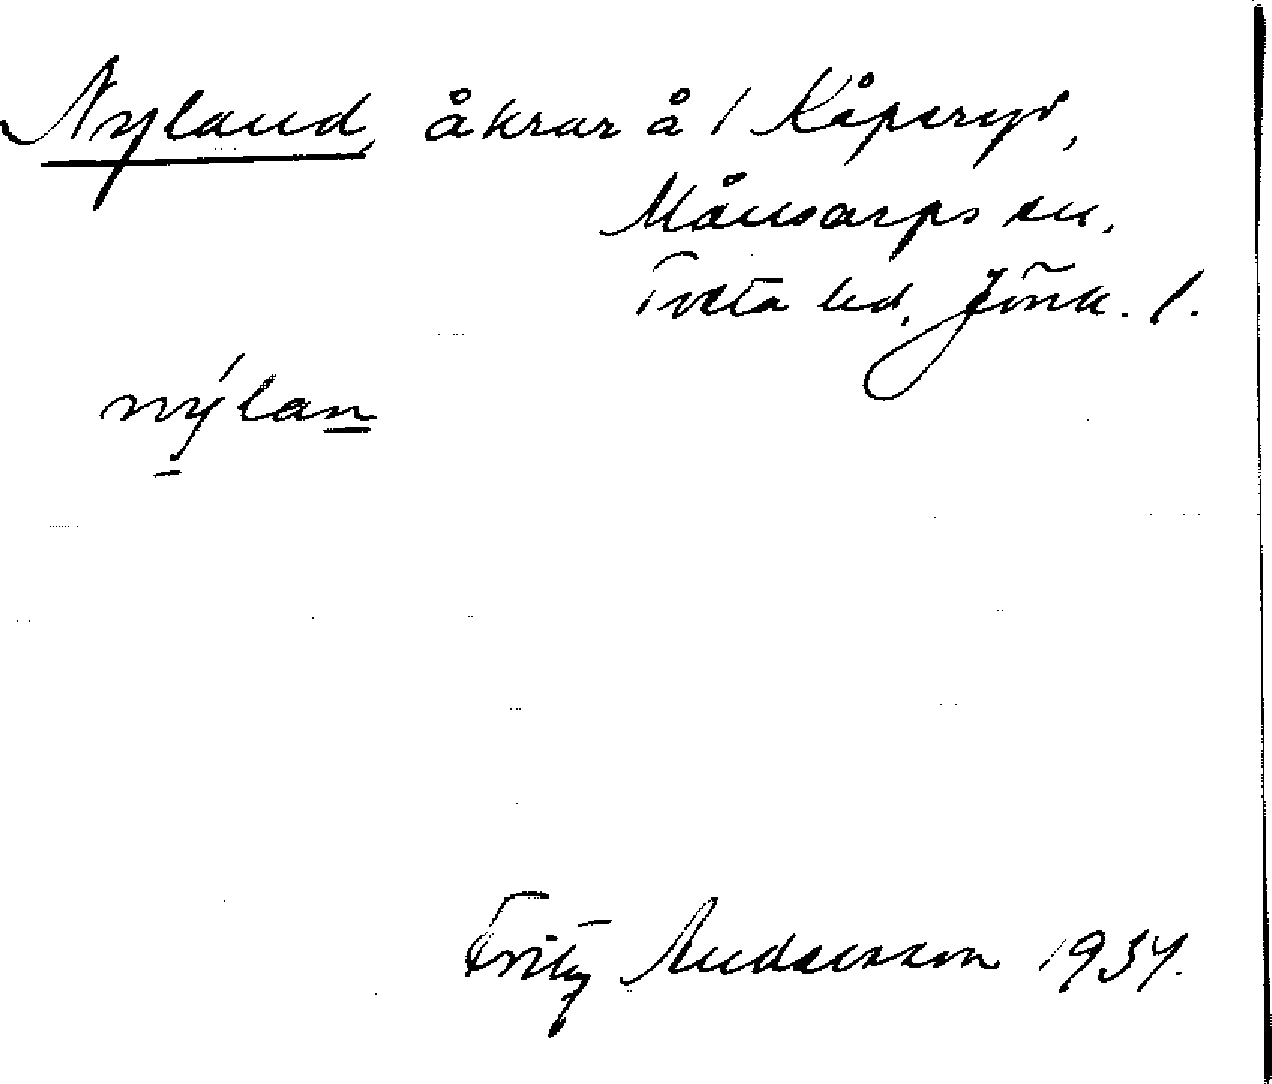 Nyland, åkrar å 1 Kåperyd,
Månsarps sn.
Tveta hd, Jönk. l.
nýlan
Fritz Andersson 1934.